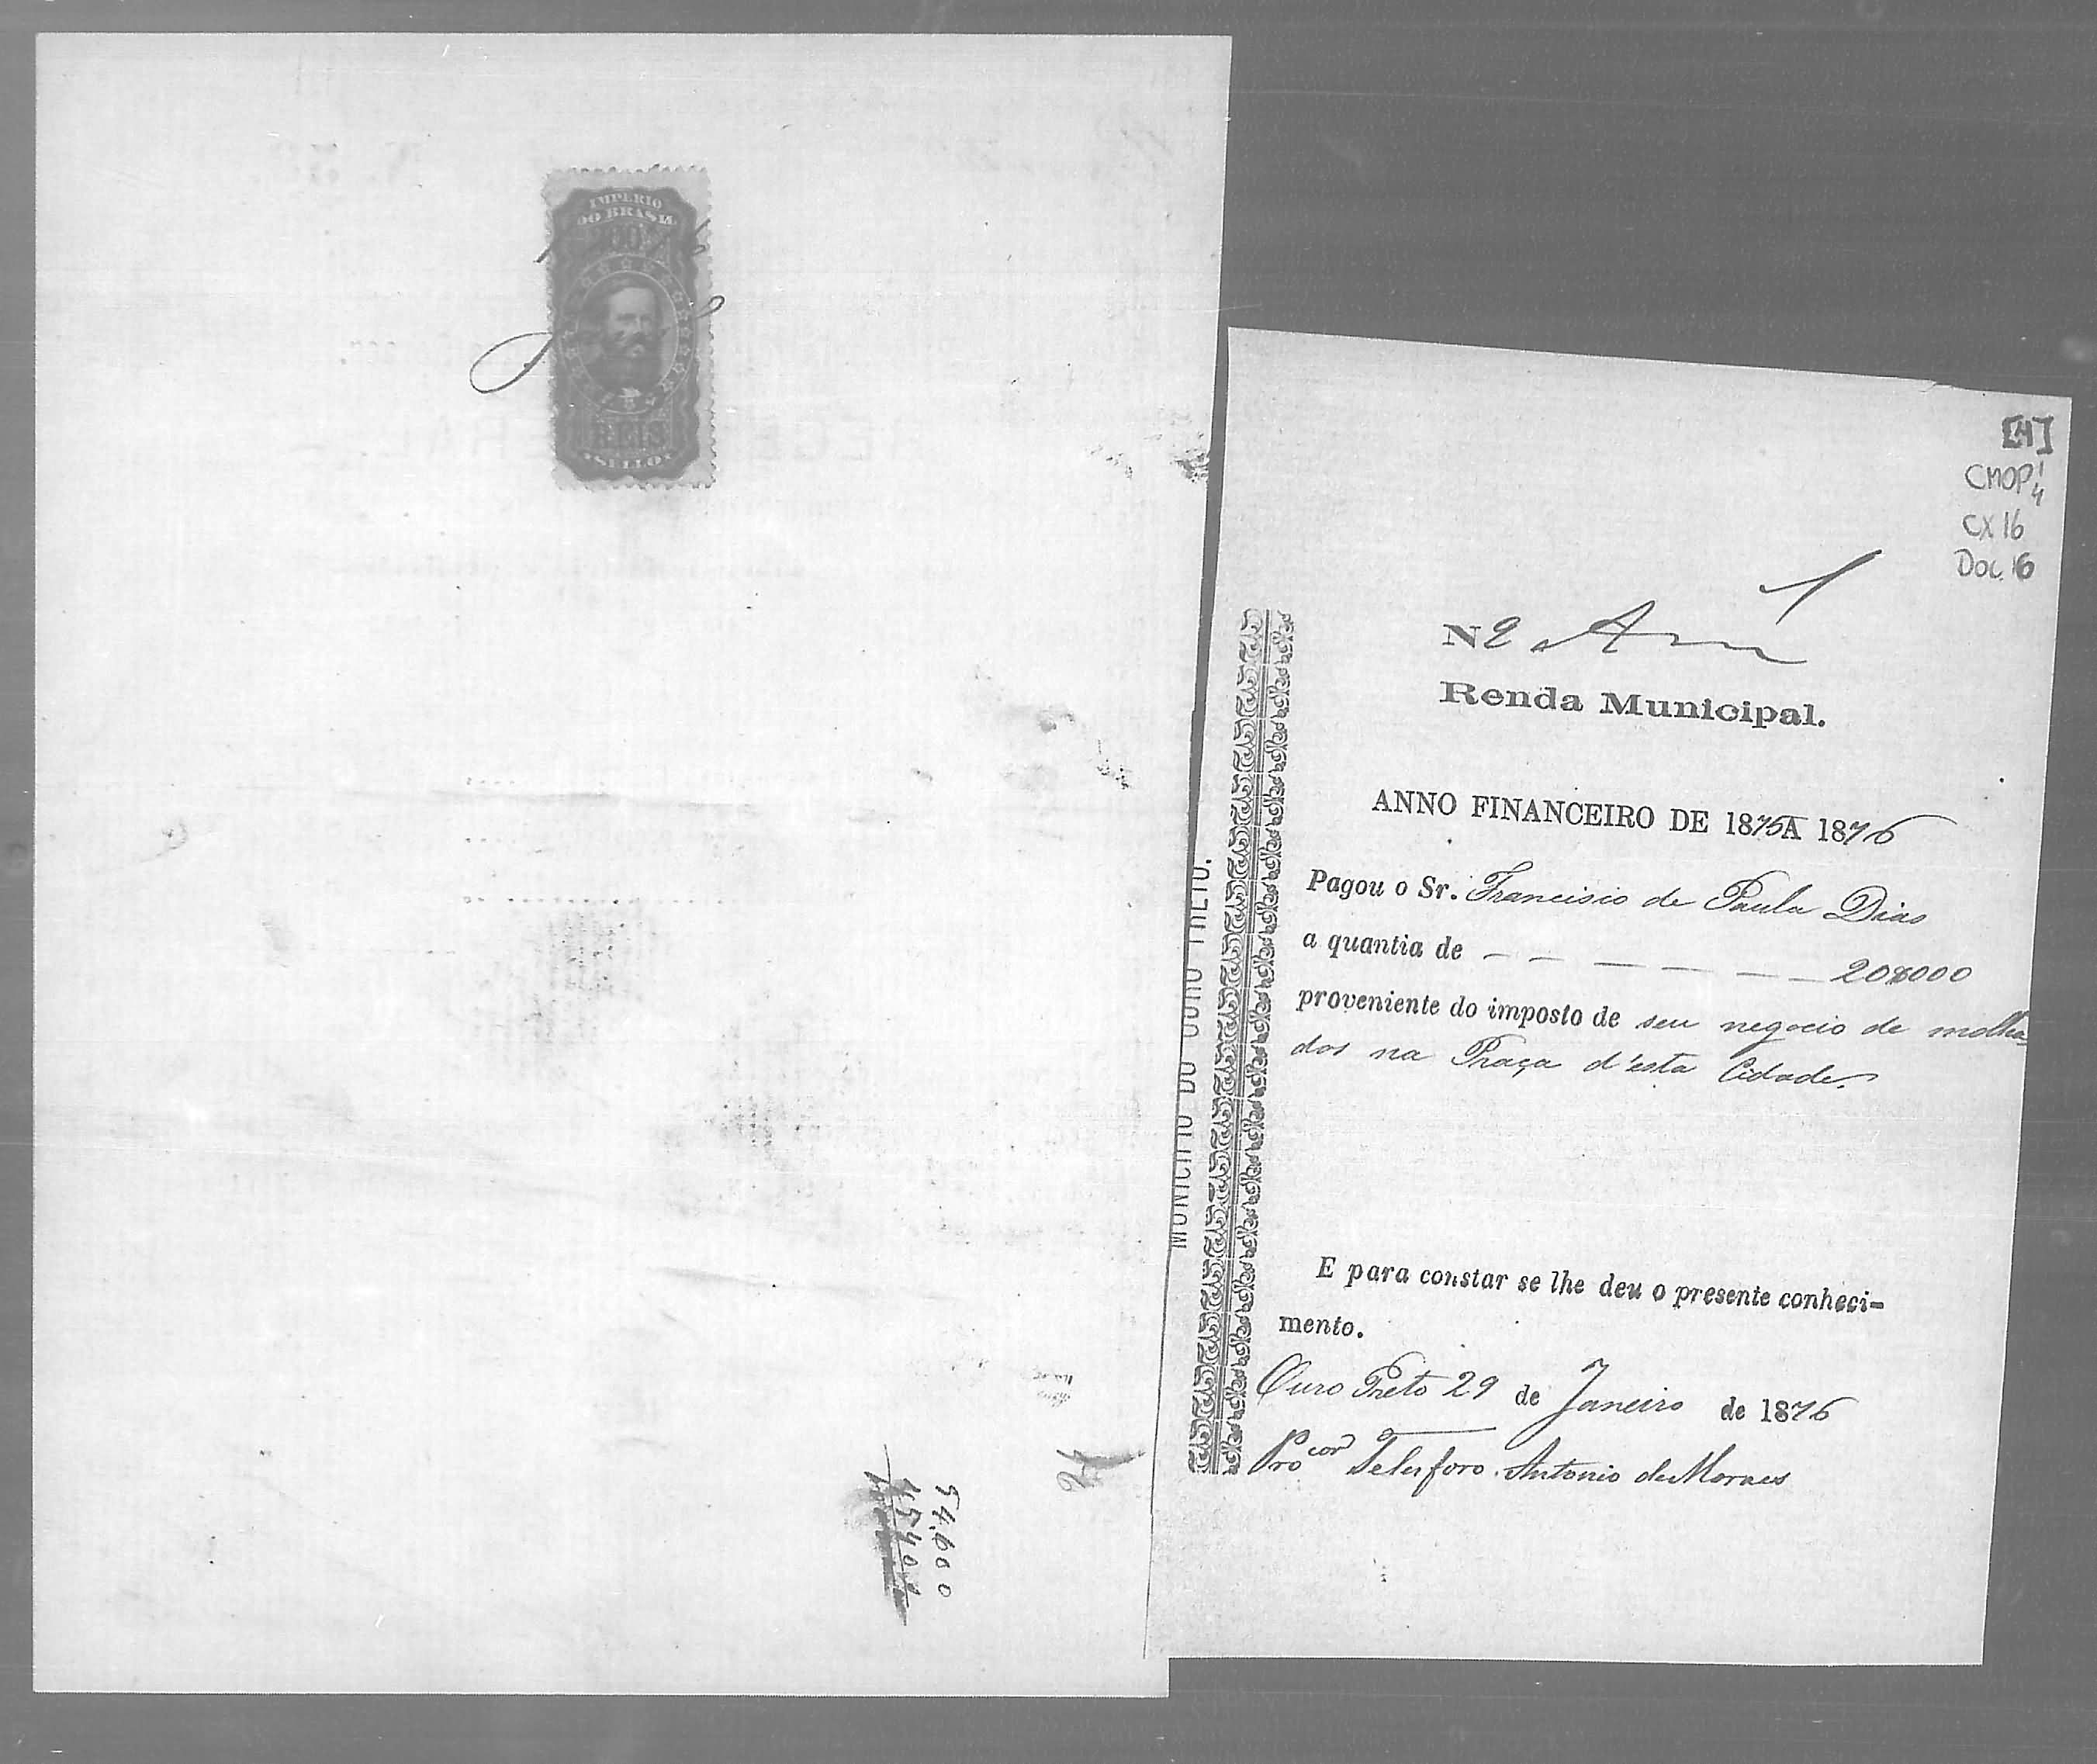 IMPERIO
DO BRASIL
REIS
SELLO
54,600
[4]
CMOP
CX 16
Doc. 16
N 2
Renda Municipal.
ANNO FINANCEIRO DE 1875 A 1876
Pagou o Sr. Francisco de Paula Dias
a quantia de — — — — — — 20$000
proveniente do imposto de seu negocio de molha
dos na Praça d'esta Cidade.
E para constar se lhe deu o presente conheci-
mento.
Ouro Preto 29 de Janeiro de 1876
Procor Telesforo Antonio de Moraes
MUNICIPIO DO OURO PRETO.